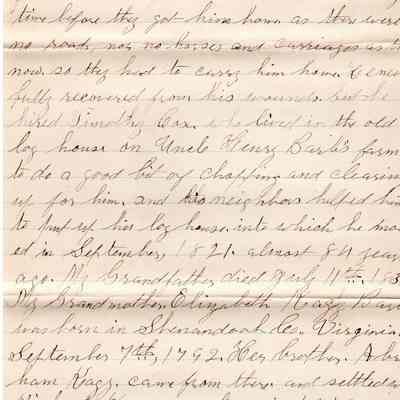 time before they got him home as there were
no roads, nor no horses and carriages as th
now. so they had to carry him home.
fully recovered from his wounds. but he
hired Timothy Cox. who lived in the old
log house on Uncle Henry Barb's farm
to do a good bit of chopping and clearin
up for him. and his neighbors helped him
to put up his log house. into which he mov
ed in September, 1821. almost 84 years
ago. My Grandfather died July 11th, 183
My Grandmother Elizabeth Kagy
was born in Shenandoah Co. Virginia.
September 7th, 1792. Her brother. Abra
ham Kagy. came from there and settled